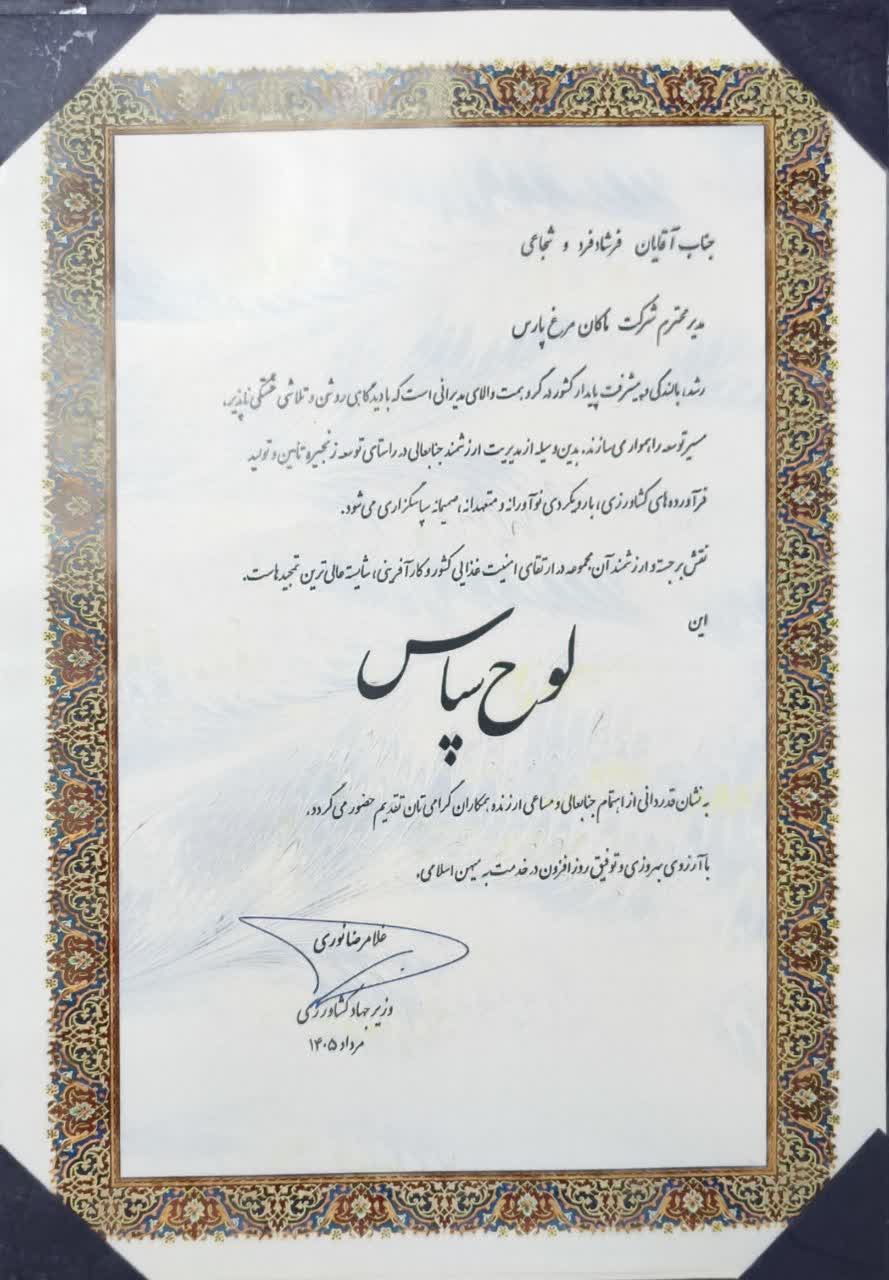 جناب آقایان فرشادفرد و شجاعی
مدیر محترم شرکت ماکان مرغ پارس
رشد، بالندگی و پیشرفت پایدار کشور در گرو همت والای مدیرانی است که با دیدگاهی روشن و تلاشی خستگی ناپذیر،
مسیر توسعه را هموار می سازند. بدین وسیله از مدیریت ارزشمند جنابعالی در راستای توسعه زنجیره تأمین و تولید
فرآورده های کشاورزی، با رویکردی نوآورانه و متعهدانه، صمیمانه سپاسگزاری می شود.
نقش برجسته و ارزشمند آن مجموعه در ارتقای امنیت غذایی کشور و کارآفرینی، شایسته عالی ترین تمجیدهاست.
این
لوح سپاس
به نشان قدردانی از اهتمام جنابعالی و مساعی ارزنده همکاران گرامی تان تقدیم حضور می گردد.
با آرزوی بهروزی و توفیق روزافزون در خدمت به میهن اسلامی.
غلامرضا نوری
وزیر جهاد کشاورزی
مرداد ۱۴۰۵